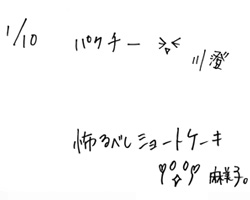 1/10
パクチー
川澄
怖るべしショートケーキ
麻美子。